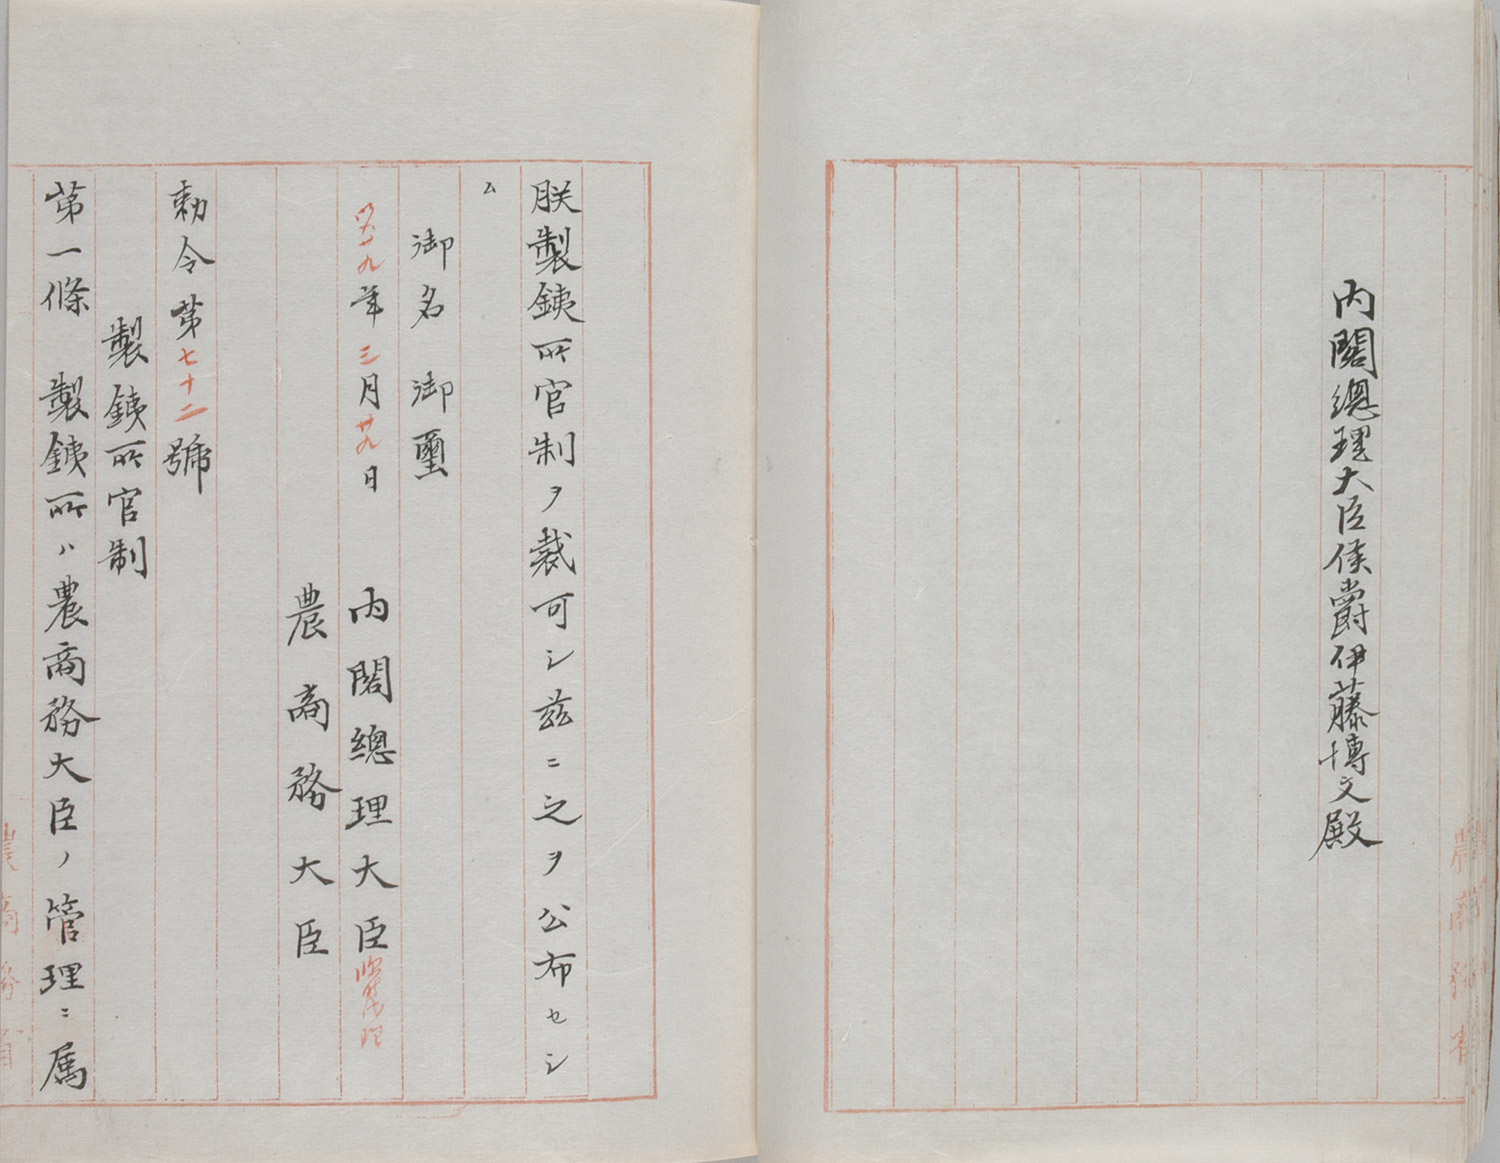 内閣總理大臣侯爵伊藤博文殿
朕製鉄所官制ヲ裁可シ茲ニ之ヲ公布セシ
ム
御名御璽
九年三月廿九日 内閣總理大臣
農商務大臣
勅令第七十二號
製鉄所官制
第一條 製鉄所ハ農商務大臣ノ管理ニ属
農商務省